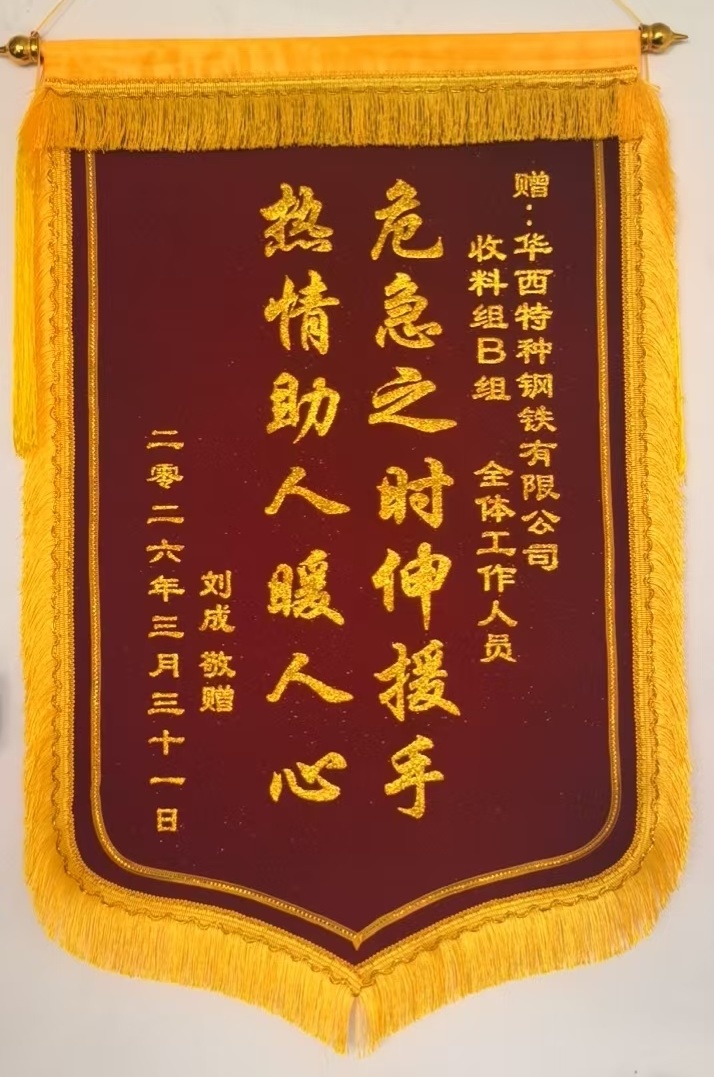 赠：华西特种钢铁有限公司
收料组B组 全体工作人员
危急之时伸援手
热情助人暖人心
刘成 敬赠
二零二六年三月三十一日